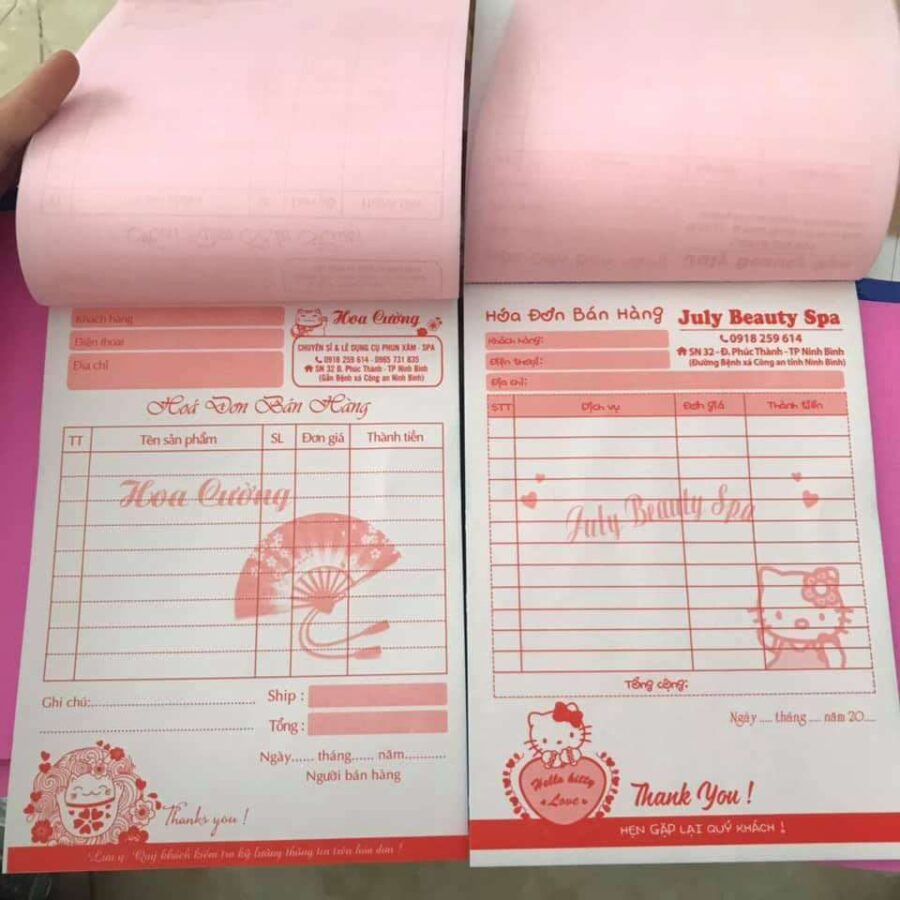 Khách hàng
Điện thoại
Địa chỉ
Hoa Cường
CHUYÊN SỈ & LẺ DỤNG CỤ PHUN XĂM - SPA
0918 259 614 - 0965 731 835
SN 32 Đ. Phúc Thành - TP Ninh Bình
(Gần Bệnh xá Công an Ninh Bình)
Hoá Đơn Bán Hàng
TT Tên sản phẩm SL Đơn giá Thành tiền
Hoa Cường
Ghi chú:
Ship :
Tổng :
Ngày...... tháng...... năm...........
Người bán hàng
Thanks you !
Lưu ý: Quý khách kiểm tra kỹ lưỡng thông tin trên hóa đơn !
Hóa Đơn Bán Hàng
July Beauty Spa
0918 259 614
SN 32 - Đ. Phúc Thành - TP Ninh Bình
(Đường Bệnh xá Công an tỉnh Ninh Bình)
Khách hàng:
Điện thoại:
Địa chỉ:
STT Dịch vụ Đơn giá Thành tiền
July Beauty Spa
Tổng cộng:
Ngày ..... tháng ..... năm 20.....
Hello kitty
Love
Thank You !
HẸN GẶP LẠI QUÝ KHÁCH !